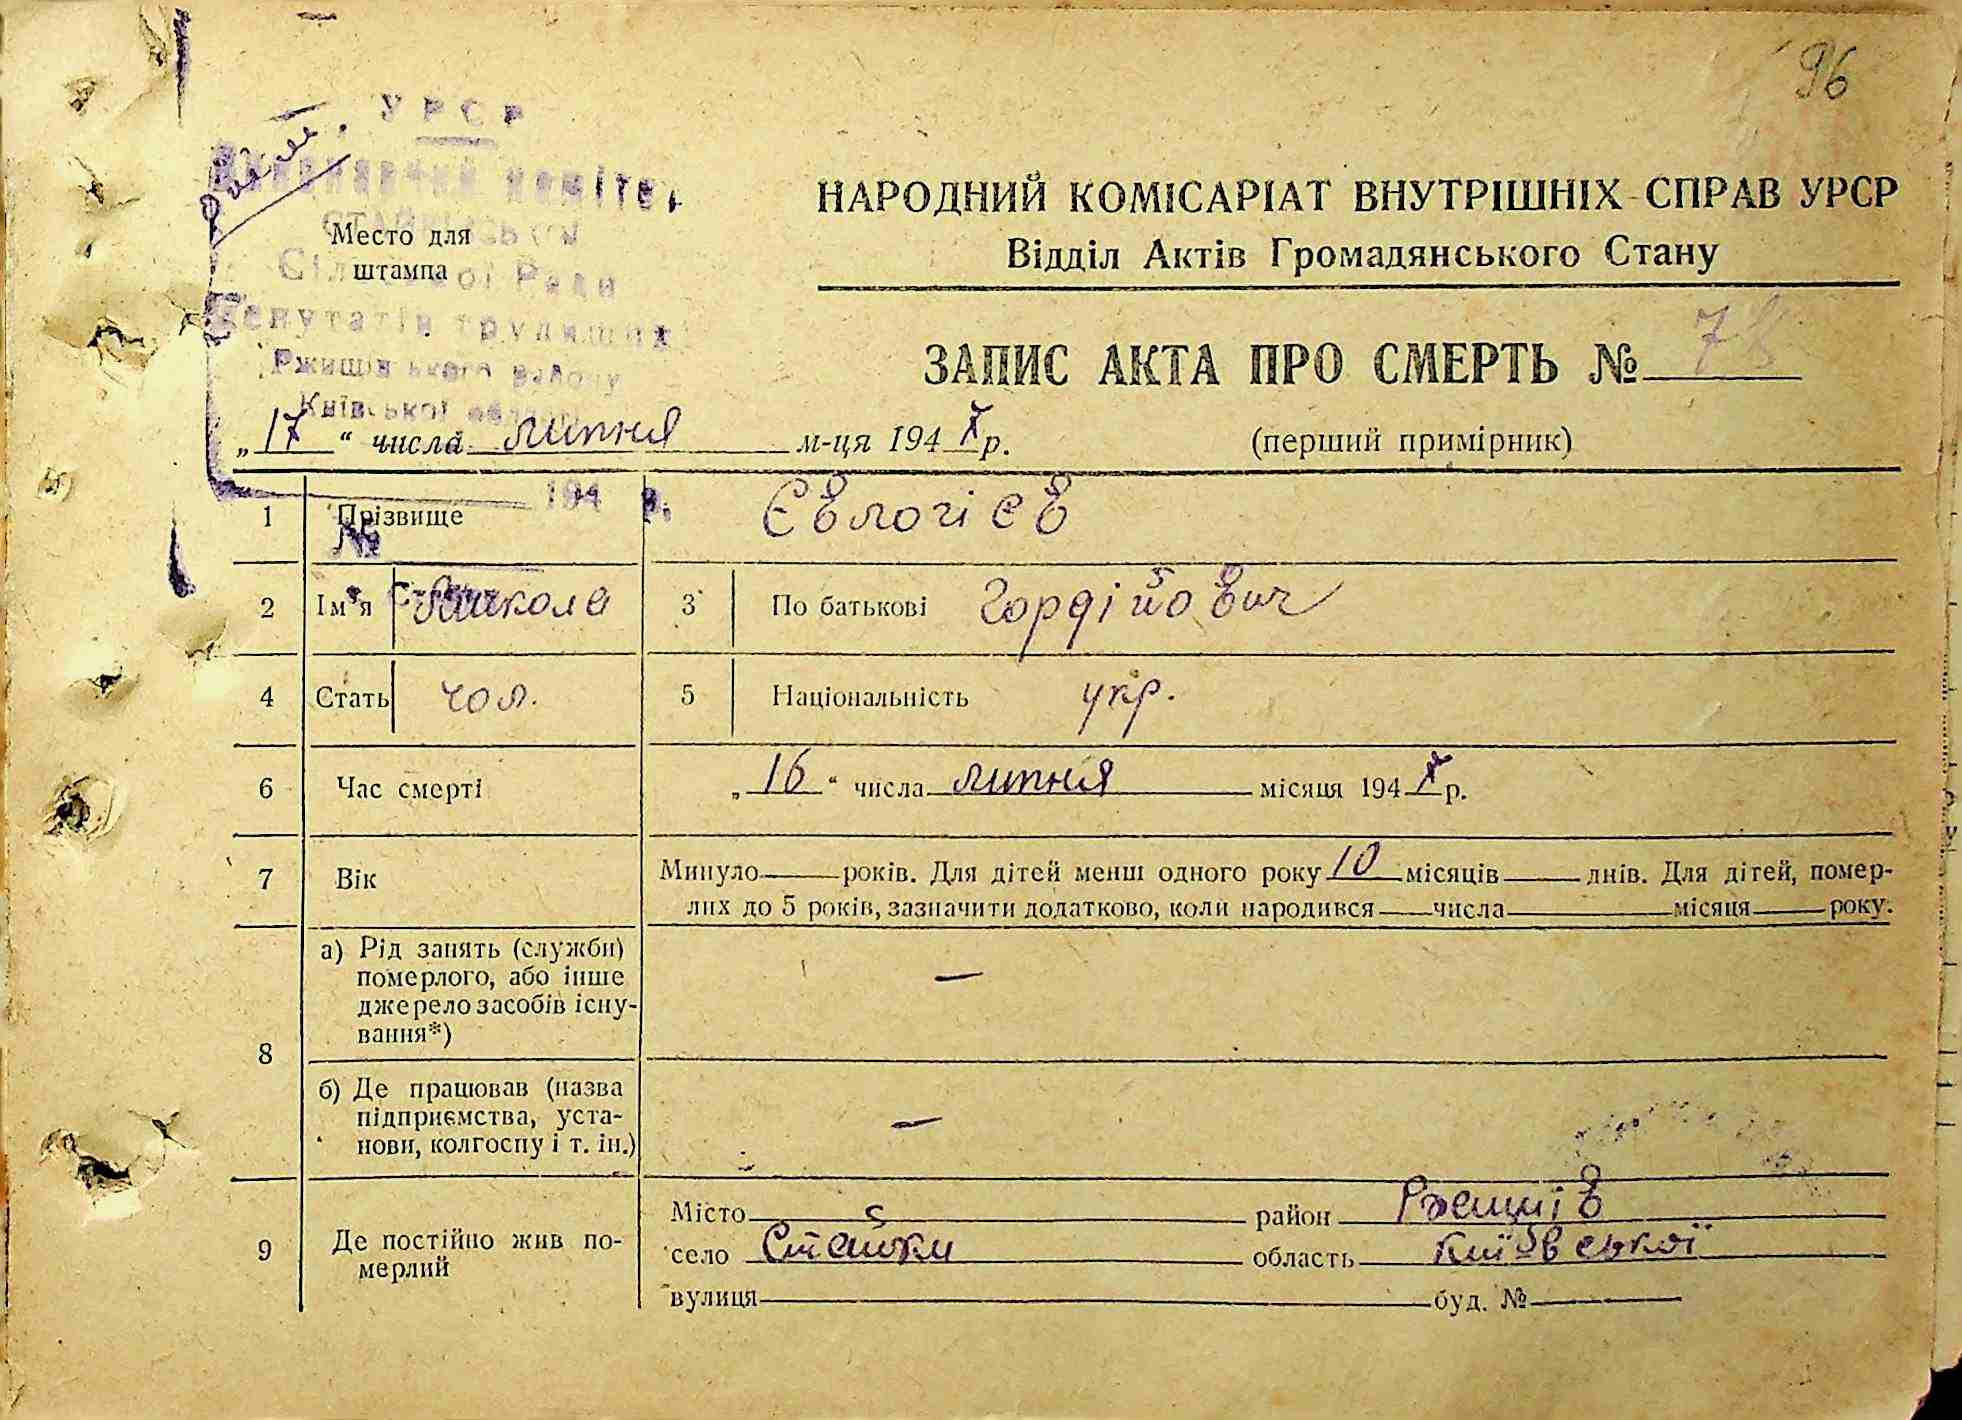 96
УРСР
Виконавчий комітет
Стайківської
Сільської Ради
Депутатів трудящих
Ржищівського району
Київської області
194 р.
№
Место для
штампа
НАРОДНИЙ КОМІСАРІАТ ВНУТРІШНІХ СПРАВ УРСР
Відділ Актів Громадянського Стану
ЗАПИС АКТА ПРО СМЕРТЬ № 78
„17“ числа липня м-ця 1947 р. (перший примірник)
1 Прізвище Євлогієв
2 Ім'я Микола 3 По батькові Гордійович
4 Стать чол. 5 Національність укр.
6 Час смерті „16“ числа липня місяця 1947 р.
7 Вік Минуло — років. Для дітей менш одного року 10 місяців — днів. Для дітей, помер-
лих до 5 років, зазначити додатково, коли народився — числа — місяця — року.
8 а) Рід занять (служби)
померлого, або інше
джерело засобів існу-
вання*) —
б) Де працював (назва
підприємства, уста-
нови, колгоспу і т. ін.) —
9 Де постійно жив по-
мерлий
Місто район Ржищів
село Стайки область Київської
вулиця буд. №